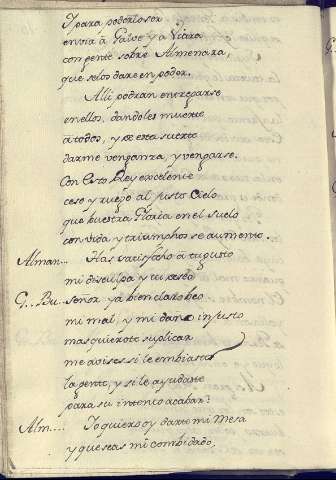 Y para poderlos or
envia â Galve y a Viara
con gente sobre Almenara,
que selos dare en poder.
Alli podran entregarse
en ellos, dandoles muerte
â todos, y de esta suerte
darme venganza, y vengarse.
Con Esto Rey excelente
ceso y ruego al justo Cielo
que buestra Gloria en el suelo
con vida y triumphos se aumente.
Alman... Has satisfecho â tu gusto
mi desculpa y tu deseo
G.. Bu. Señor ya bien claro beo
mi mal, y mi daño injusto
mas quierote suplicar
me avises si le embiaras
la gente, y si le ayudaras
para su intento acabar?
Alm.... Yo quiero oy darte mi Mesa
y que seas mi combidado,